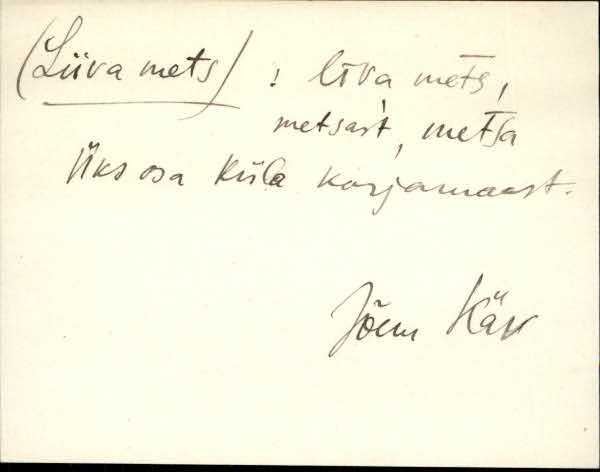 (Liiva mets) : līva met̄s,
metsast, met̄sa
Üks osa küla karjamaast.
Jõem Kär